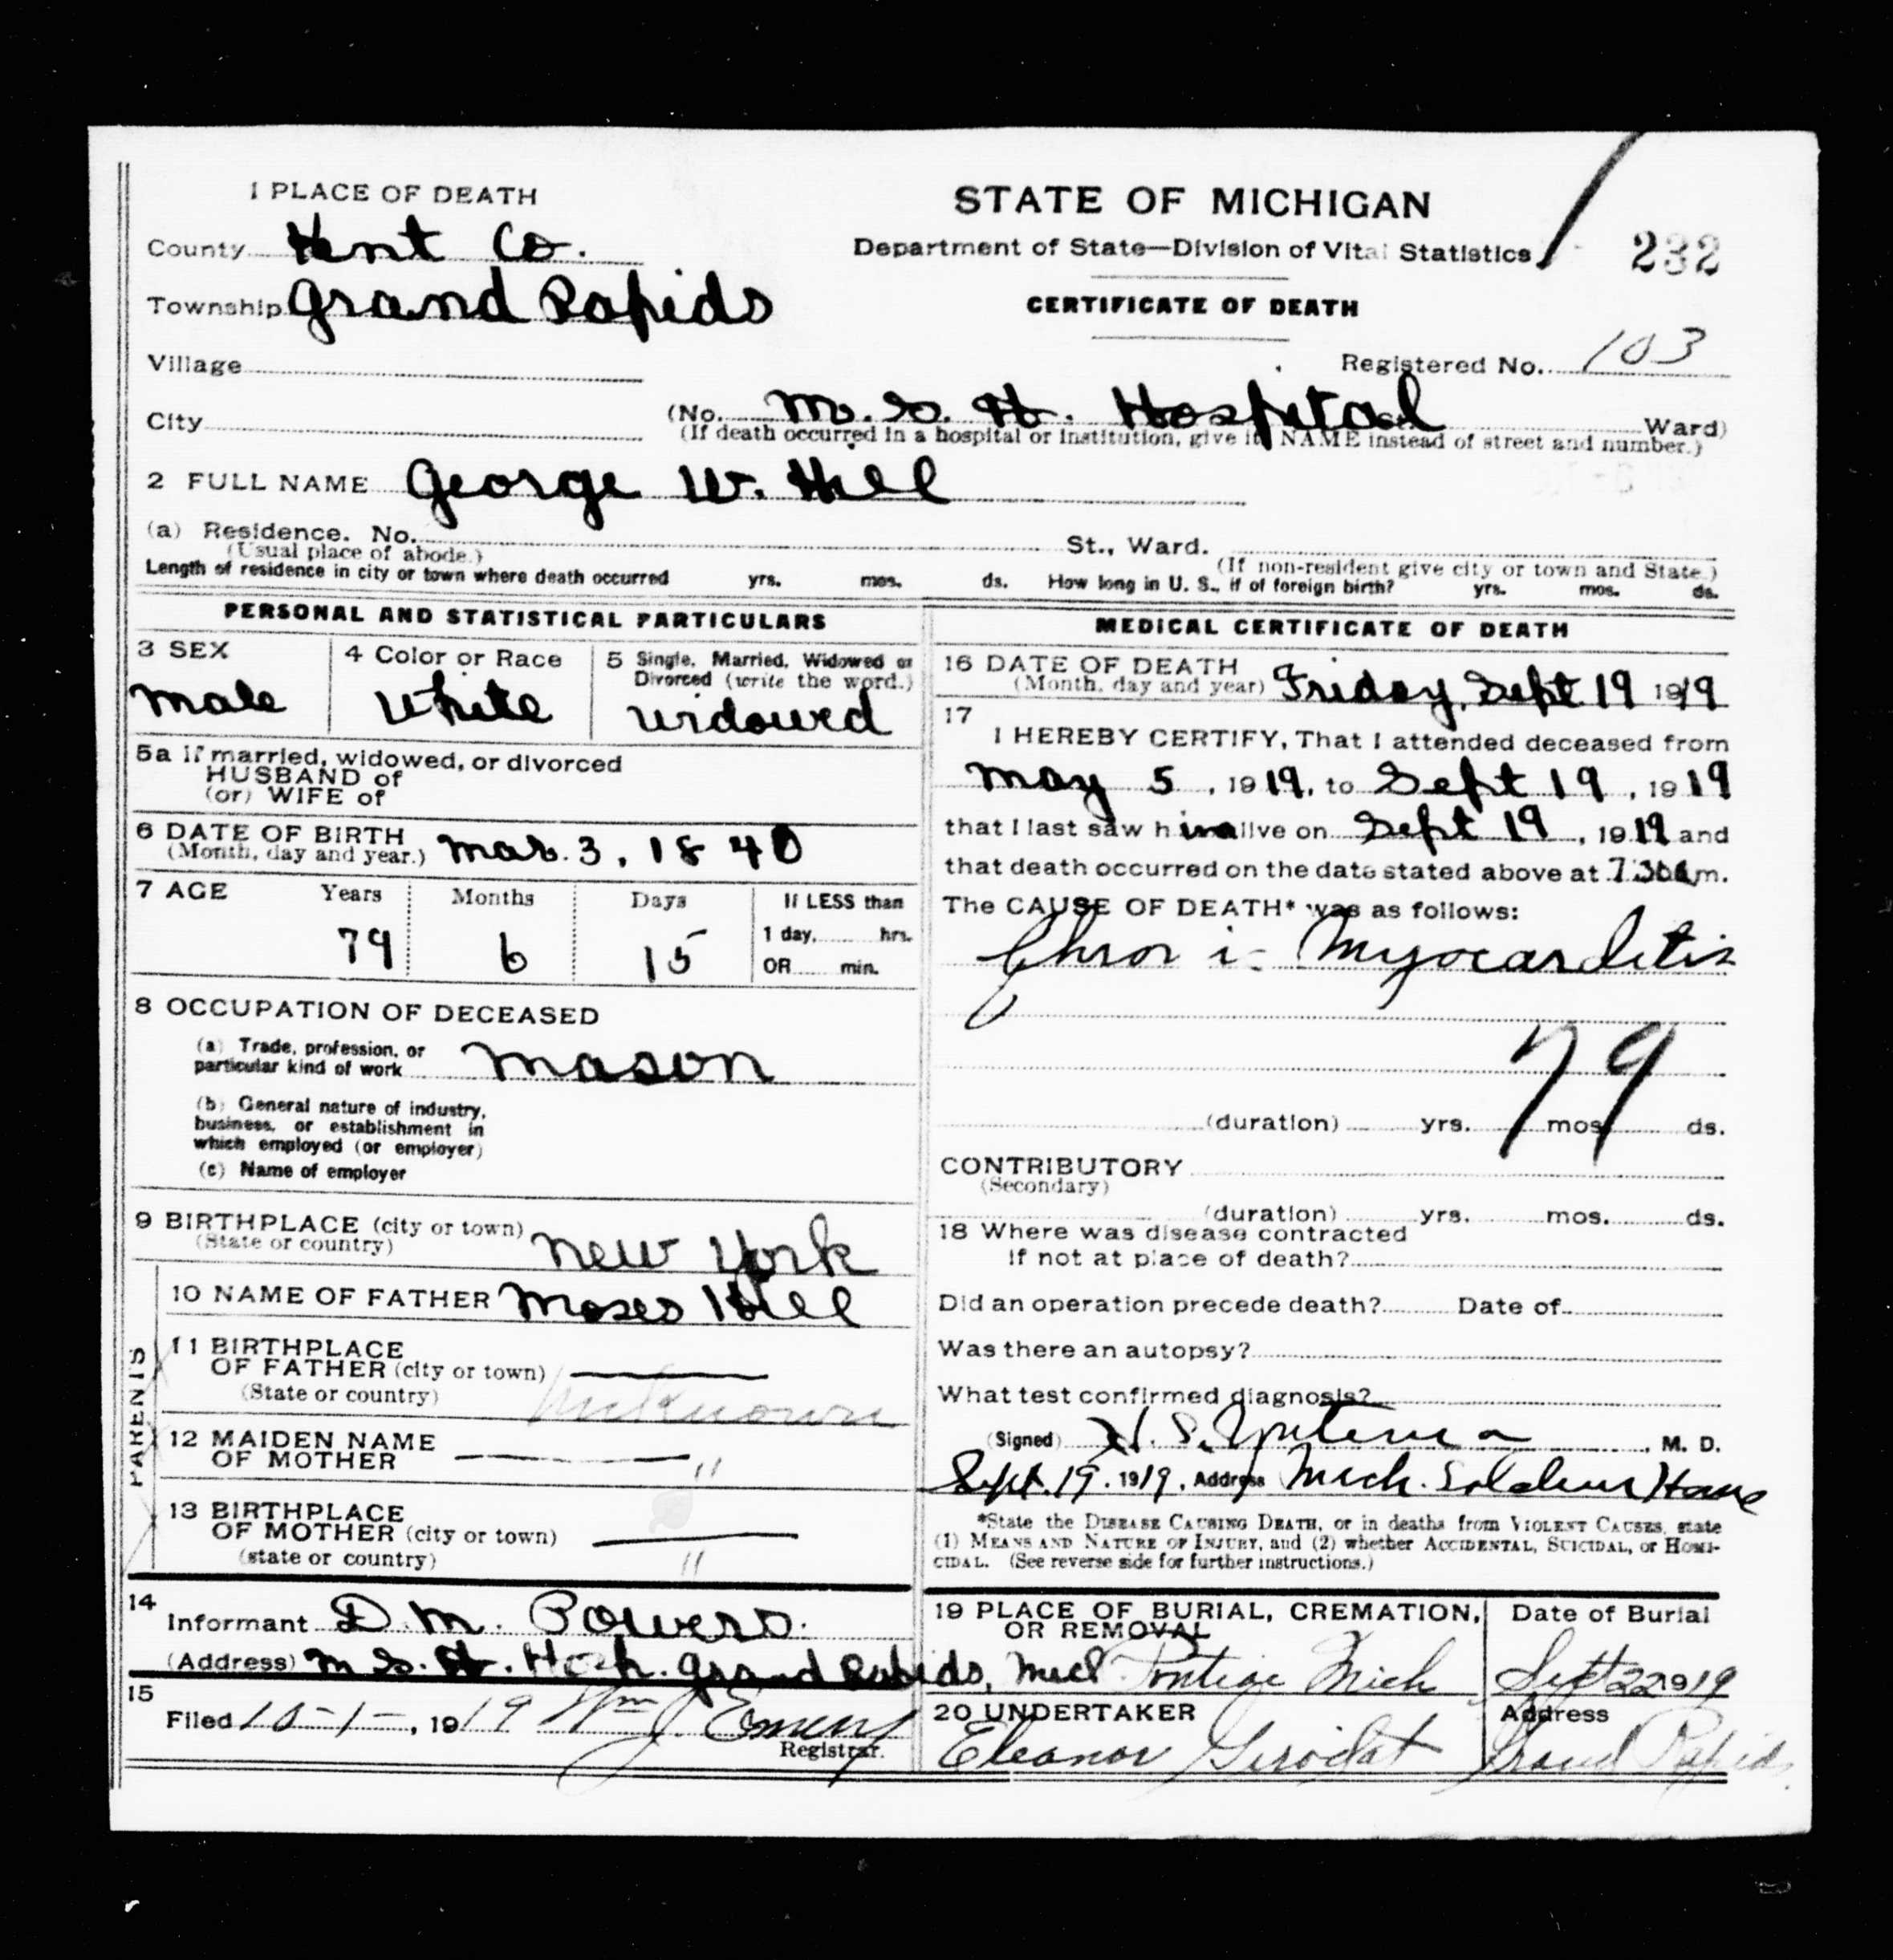 1 PLACE OF DEATH
STATE OF MICHIGAN
County Kent Co.
Department of State—Division of Vital Statistics
232
Township Grand Rapids
CERTIFICATE OF DEATH
Village
Registered No. 103
City (No. M. S. H. Hospital St. Ward)
(If death occurred in a hospital or institution, give its NAME instead of street and number.)
2 FULL NAME George W. Hill
(a) Residence. No. St., Ward.
(Usual place of abode.) (If non-resident give city or town and State.)
Length of residence in city or town where death occurred yrs. mos. ds. How long in U. S., if of foreign birth? yrs. mos. ds.
PERSONAL AND STATISTICAL PARTICULARS
3 SEX
Male
4 Color or Race
White
5 Single, Married, Widowed or
Divorced (write the word.)
widowed
5a If married, widowed, or divorced
HUSBAND of
(or) WIFE of
6 DATE OF BIRTH
(Month, day and year.) Mar. 3, 1840
7 AGE Years Months Days If LESS than
1 day, hrs.
79 6 15 OR min.
8 OCCUPATION OF DECEASED
(a) Trade, profession, or
particular kind of work Mason
(b) General nature of industry,
business, or establishment in
which employed (or employer)
(c) Name of employer
9 BIRTHPLACE (city or town)
(State or country) New York
PARENTS
10 NAME OF FATHER Moses Hill
11 BIRTHPLACE
OF FATHER (city or town)
(State or country) Unknown
12 MAIDEN NAME
OF MOTHER "
13 BIRTHPLACE
OF MOTHER (city or town)
(state or country) "
14
Informant D. M. Powers.
(Address) M. S. H. Hosp. Grand Rapids, Mich
15
Filed 10-1-, 1919 Wm J. Emery
Registrar.
MEDICAL CERTIFICATE OF DEATH
16 DATE OF DEATH
(Month, day and year) Friday, Sept. 19 1919
17
I HEREBY CERTIFY, That I attended deceased from
May 5, 1919, to Sept 19, 1919
that I last saw him alive on Sept 19, 1919 and
that death occurred on the date stated above at 7:30 a.m.
The CAUSE OF DEATH* was as follows:
Chronic Myocarditis
79
(duration) yrs. mos. ds.
CONTRIBUTORY
(Secondary)
(duration) yrs. mos. ds.
18 Where was disease contracted
if not at place of death?
Did an operation precede death? Date of
Was there an autopsy?
What test confirmed diagnosis?
(Signed) , M. D.
Sept. 19. 1919, Address Mich. Soldiers Home
*State the DISEASE CAUSING DEATH, or in deaths from VIOLENT CAUSES, state
(1) MEANS AND NATURE OF INJURY, and (2) whether ACCIDENTAL, SUICIDAL, or HOMI-
CIDAL. (See reverse side for further instructions.)
19 PLACE OF BURIAL, CREMATION,
OR REMOVAL
Pontiac Mich
Date of Burial
Sept 22 1919
20 UNDERTAKER
Eleanor Girodat
Address
Grand Rapids